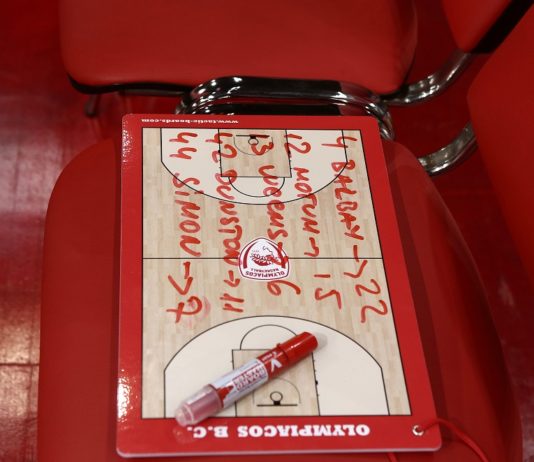 4 BALBAY → 22
12 MOTUM → 15
13 WEEMS → 6
42 DUNSTON → 11
44 SIMON → 7
www.tactic-boards.com
OLYMPIACOS
BASKETBALL
BOARD
MASTER
OLYMPIACOS B.C.